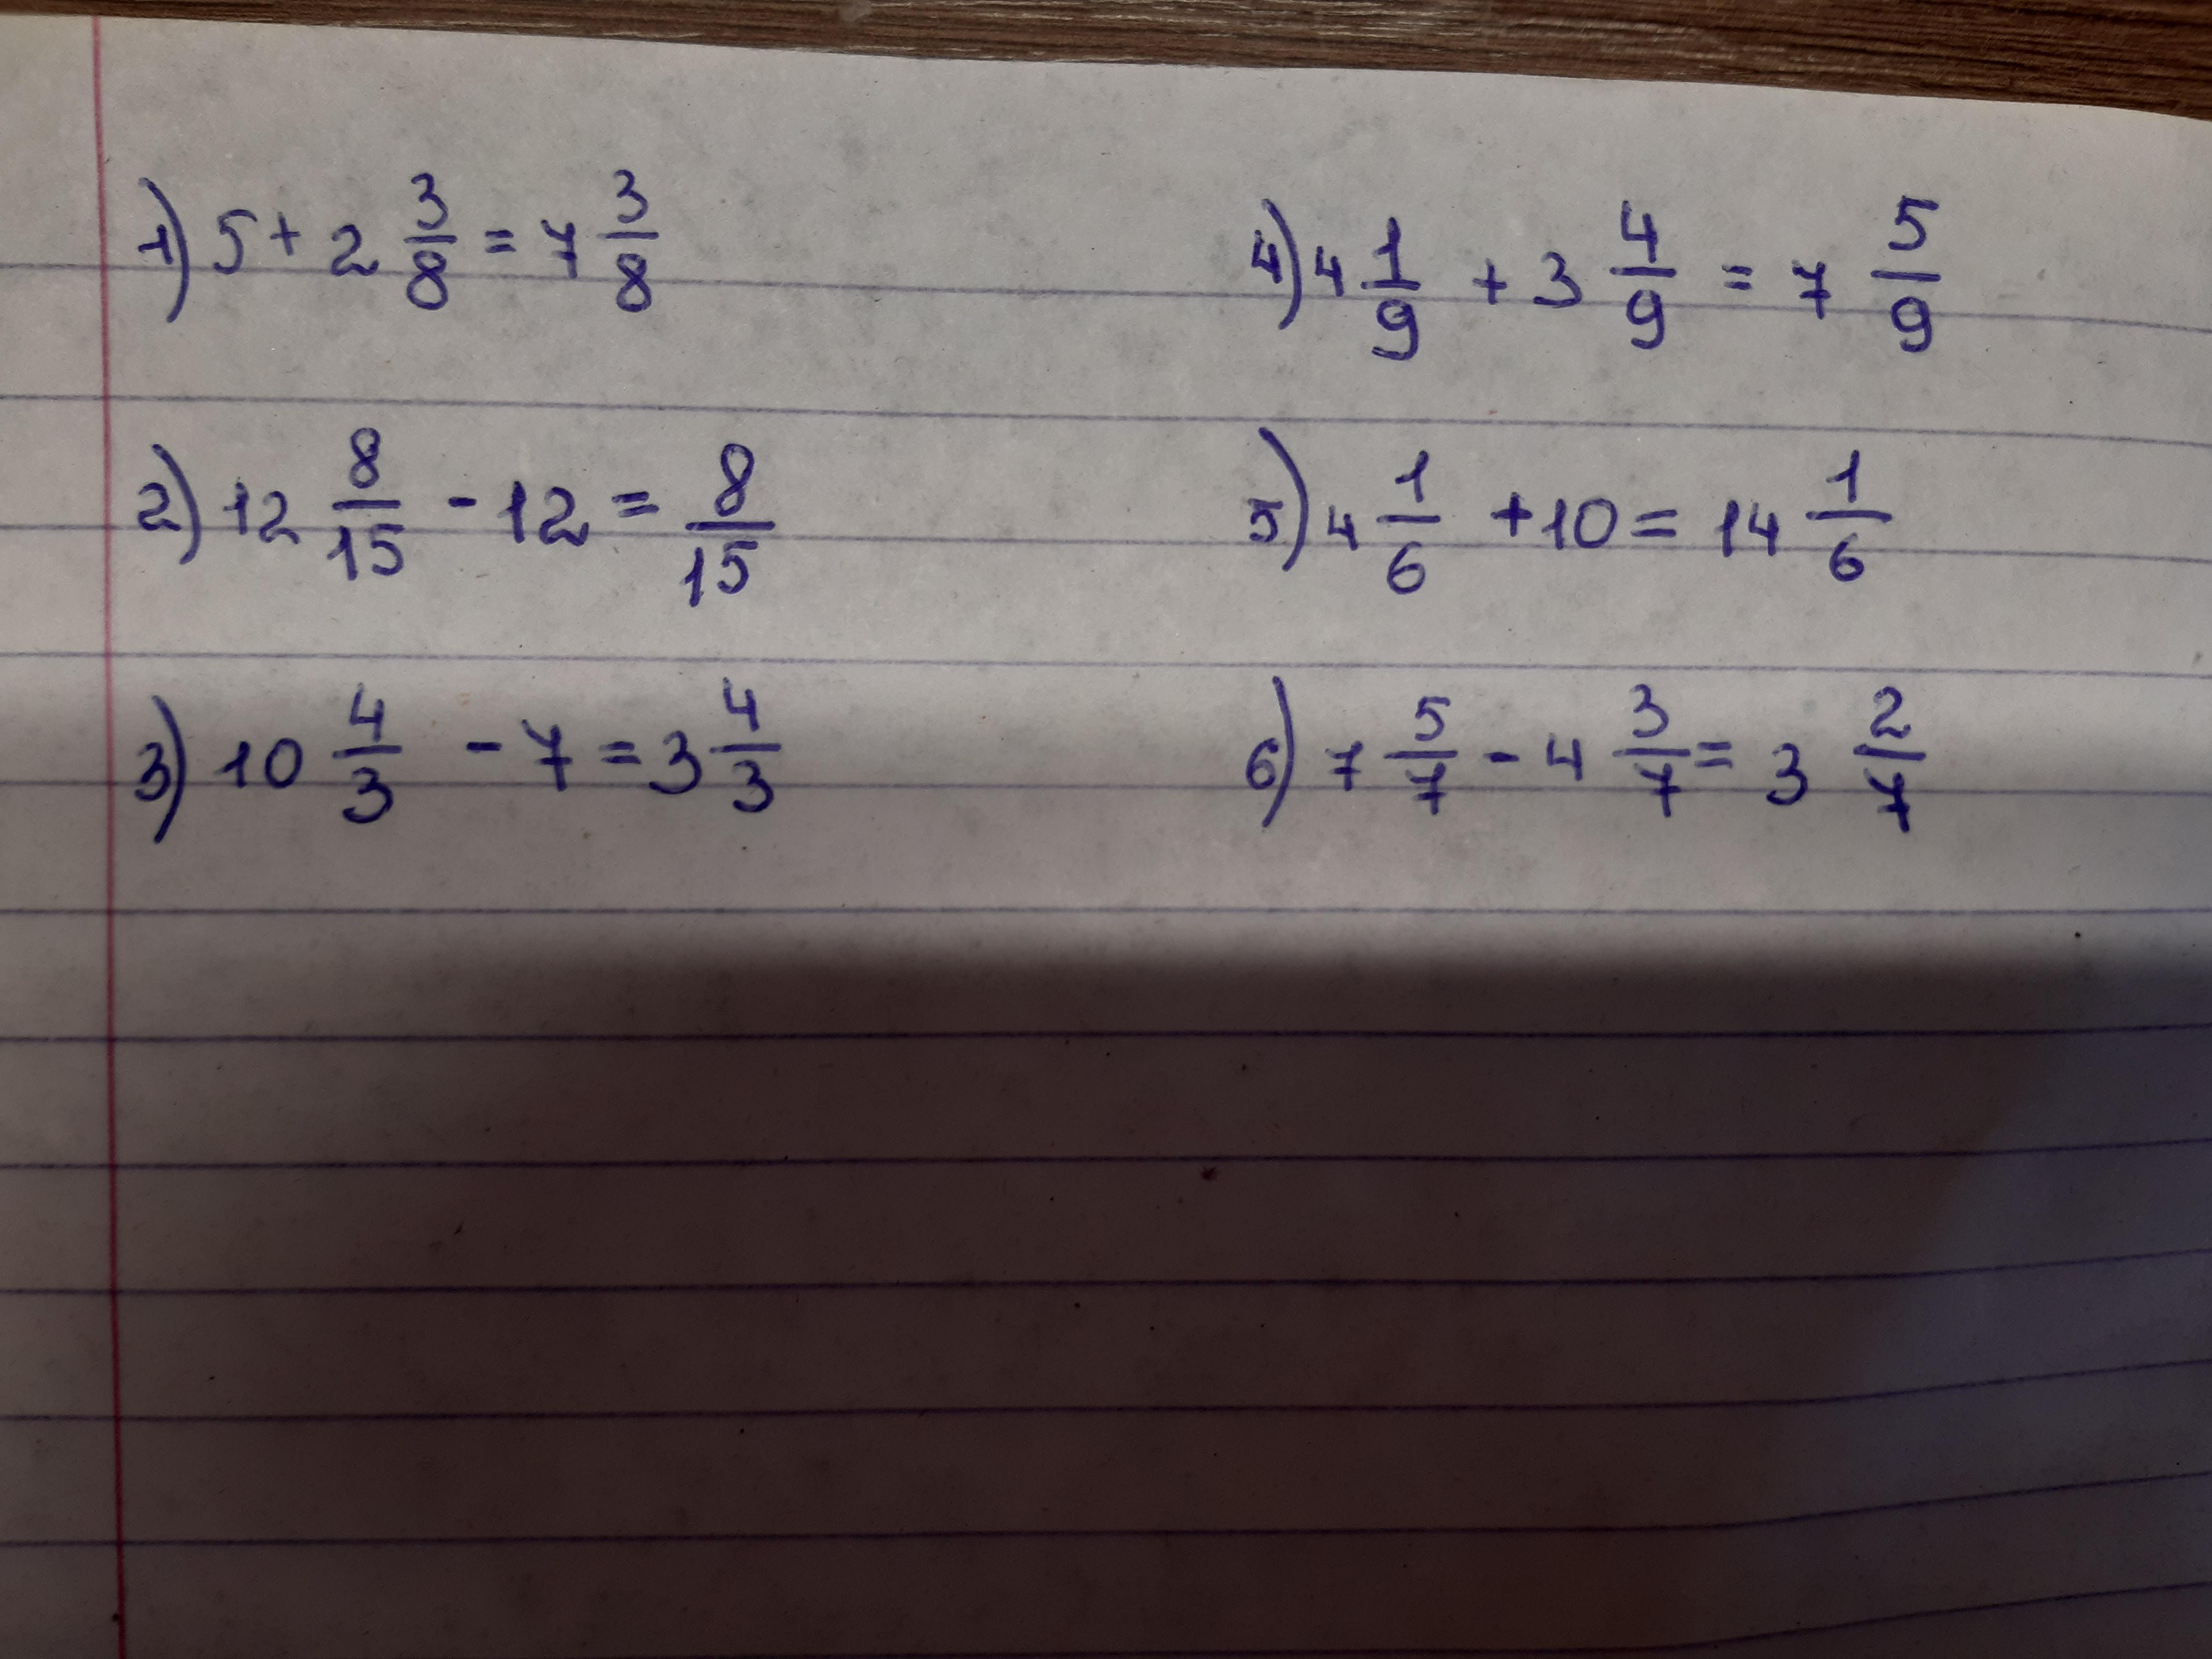 1) 5 + 2 3/8 = 7 3/8
2) 12 8/15 - 12 = 8/15
3) 10 4/3 - 7 = 3 4/3
4) 4 1/9 + 3 4/9 = 7 5/9
5) 4 1/6 + 10 = 14 1/6
6) 7 5/7 - 4 3/7 = 3 2/7